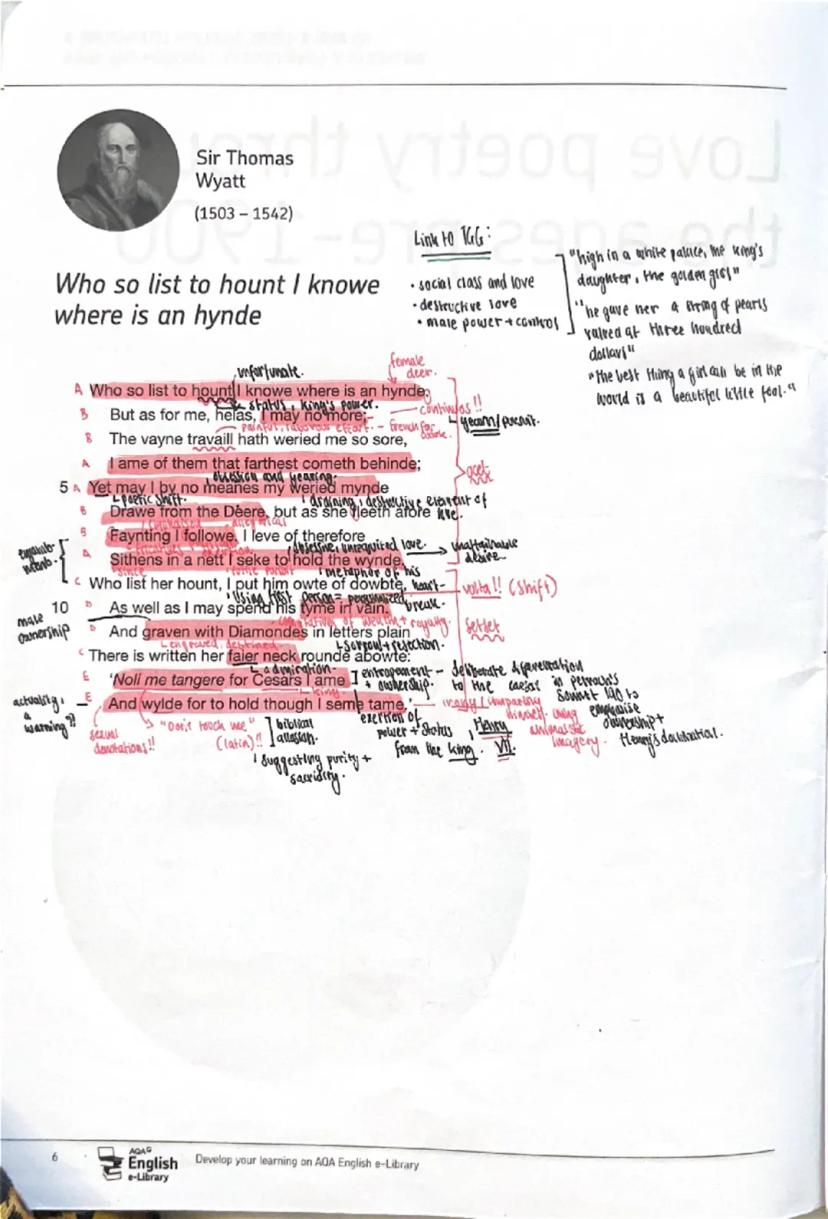 Sir Thomas
Wyatt
(1503 – 1542)
Link to TGG:
• social class and love
• destructive love
• male power + control
"high in a white palace, the king's
daughter, the golden girl"
"he gave her a string of pearls
valued at three hundred
dollars"
"The best thing a girl can be in the
world is a beautiful little fool."
Who so list to hount I knowe
where is an hynde
unfortunate.
female
deer.
A Who so list to hount I knowe where is an hynde;
status, king's power.
B But as for me, helas, I may no more;
continuous!!
painful, laborious effort. – French for
B The vayne travaill hath weried me so sore,
yearn/pursuit.
A I ame of them that farthest cometh behinde;
obsession and yearing.
octet
5 A Yet may I by no meanes my weried mynde
poetic shift.
draining, destructive element of
love.
B Drawe from the Deere, but as she fleeth afore
B Faynting I followe. I leve of therefore
obsessive, unrequited love.
unattainable
desire.
A Sithens in a nett I seke to hold the wynde.
since
metaphor of his
C Who list her hount, I put him owte of dowbte,
heart-
break.
volta!! (shift)
using first person = personalised
10 D As well as I may spend his tyme in vain.
male
ownership
connotations of wealth + royalty.
D And graven with Diamondes in letters plain
sestet
engraved, destined
sorrow + rejection.
C There is written her faier neck rounde abowte:
admiration.
E 'Noli me tangere for Cesars I ame
entrapment
+ ownership.
– deliberate
to the caesar in petrarch's
sonnet 190 to
emphasise
ownership +
Henry's
king
E And wylde for to hold though I seme tame.'
actuality,
a
warning?!
sexual
"Don't touch me"
(latin)!!
biblical
allusion.
suggesting purity +
exertion of
power + status
from the king.
Henry
VII.
himself using
imagery.
6
AQA
English
e-Library
Develop your learning on AQA English e-Library